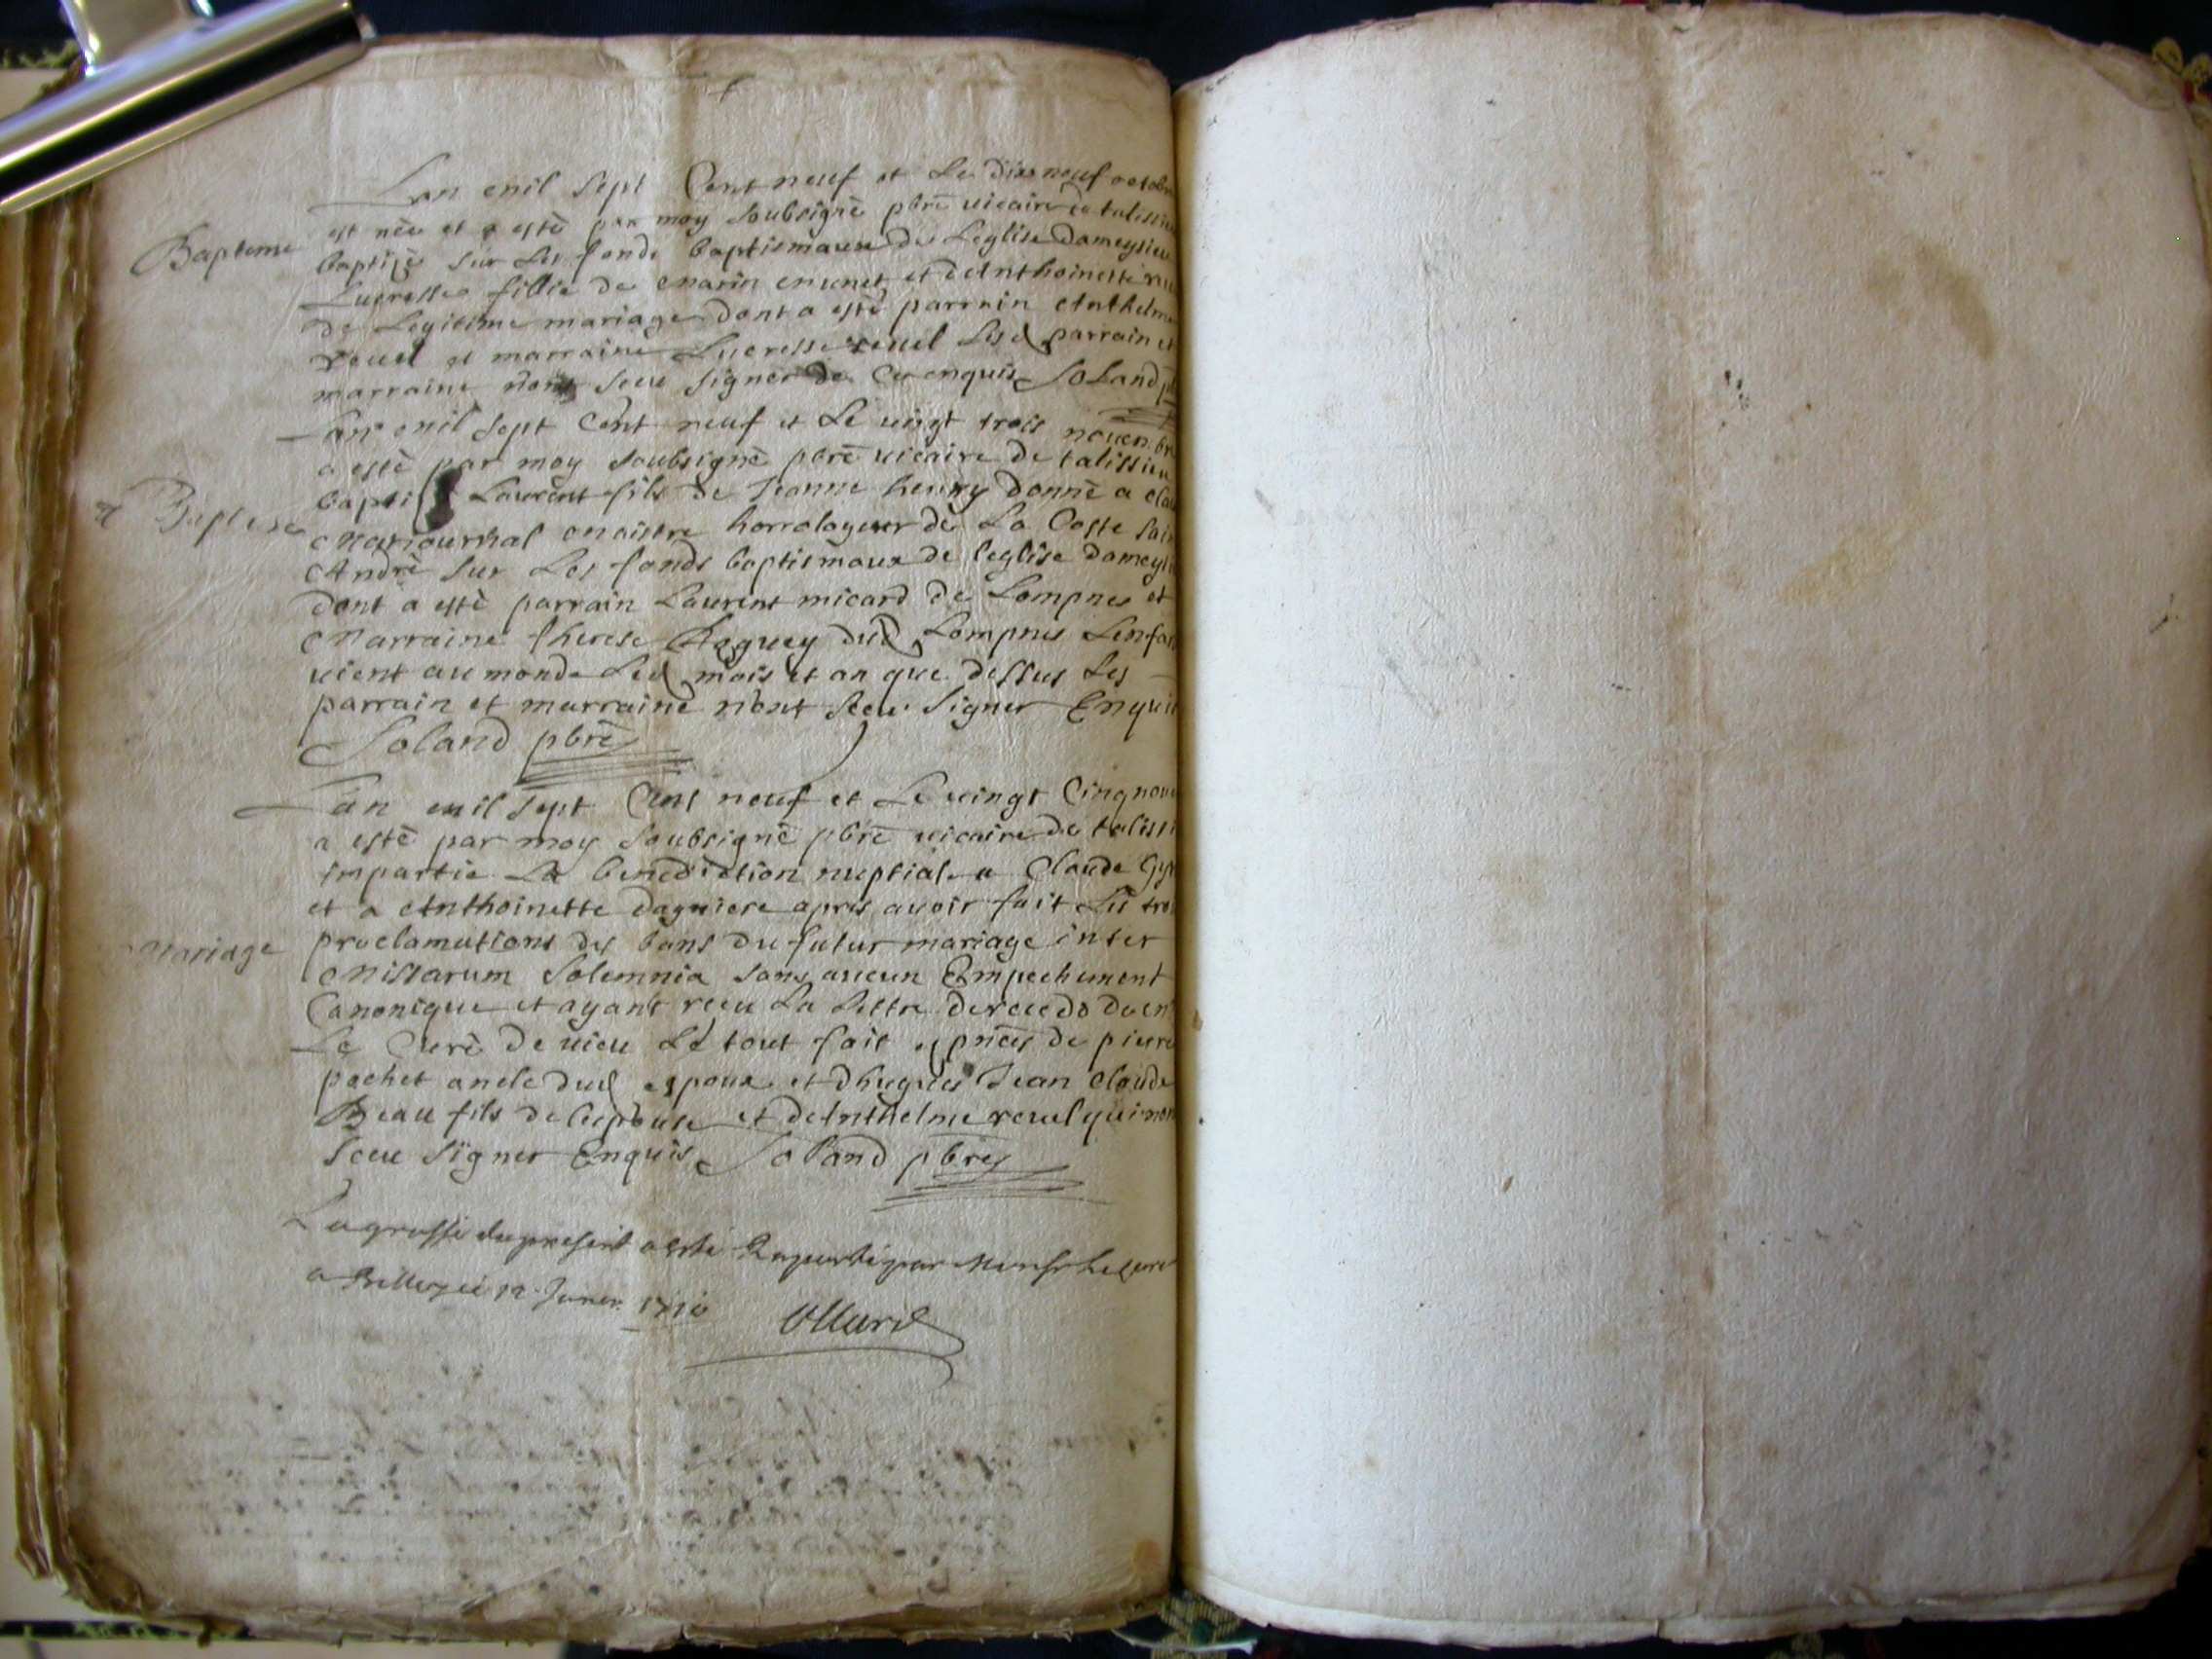 Lan mil sept Cent neuf et Le dix neuf octobre
est nèe et a estè par moy soubsignè pbrē uicaire de talissieu
Bapteme
baptisèe sur Les fonds baptismaux de Leglise dameysieu
Lucresse fille de marin et danthoinette
de Legitime mariage dont a estè parrain Anthelme
reuel et marraine Lucresse reuel Lesd parrain et
marraine nont sceu signer de ce enquis Soland
Lan mil sept Cent neuf et Le uingt trois nouembre
a estè par moy soubsignè pbrē uicaire de talissieu
Laurent fils de Jeanne henry donnè a
Bapteme
maistre horrologeur de La Coste sain
Andrè sur Les fonds baptismaux de leglise dameysi
dont a estè parrain Laurent micard de Lompnes et
Marraine therese dud Lompnes Lenfan
uient au monde Lesd mois et an que dessus Les
parrain et marraine nont sceu signer Enquis
Soland pbrē
Lan mil sept Cent neuf et Le uingt Cinq nou
a estè par moy soubsignè pbrē uicaire de talissi
impartie La benediction nuptiale a Claude
et a Anthoinette daguiere apres auoir fait Les troi
Mariage
proclamations des bans du futur mariage inter
Missarum solemnia sans aucun Empechement
Canonique et ayant receu La Lettre de recedo de
Le Curè de uieu Le tout fait es pnces de pierre
pochet oncle dud espoux et dhugues Jean Claude
Beau fils de lespouse et dAnthelme reuel qui non
sceu signer Enquis Soland pbrē
La grosse du present a esté Raportée par Monsr Le Curé
a Belley ce 12 Januier 1710